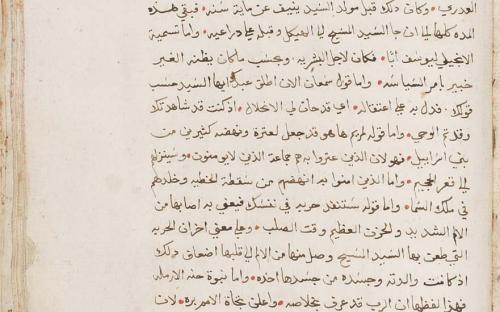 العدري • وكان ذلك قبل مولد السيد بنيف عن ماية سنه • فبقي لهذه
المده كلها الي ان جا السيد المسيح الي الهيكل وقبله علي دراعيه • واما تسمية
الانجيلي ليوسف ابًا • فكان لاجل البشريه • وبحسب ما كان يظنه الغير
خبير بامر السياسه • واما قول سمعان الان اطلق عبدك ايها السيد حسب
قولك • فدل به علي اعتقاله • اي قد حان لي الانحلال • اذ كنت قد شاهدتك
وقد تم الوحي • واما قوله لمريم ها هو قد جعل لعثرة ونهضه كثيرين من
بني اسراييل • فهولاي الذين عثروا به هم جماعة الذين لا يومنون • وسينزلهم
الي قعر الجحيم • واما الذين امنوا به انهضهم من سقطة الخطيه وخلدهم
في ملك السما • واما قوله ستنفد حربه في نفسك فيعني به اصابها من
الالم الشديد والحزن العظيم وقت الصلب • وعلي معني اخر ان الحربه
التي طعن بها السيد المسيح وصل منها من الالم الي قلبها اضعاف ذلك
اذ كانت والدته وجسده من جسدها اخده • واما نبوة حنه الارمله
فهذا لفظها ان الرب قد عرف بخلاصه • واعلن بنجاة الامم بره • لان